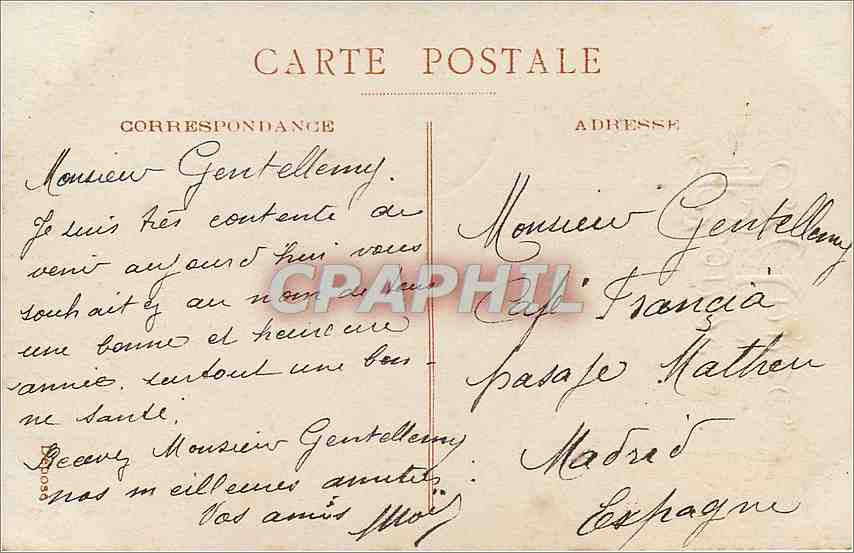 CARTE POSTALE
CORRESPONDANCE
Monsieur Gentellemy.
Je suis très contente de
venir aujourd'hui vous
souhaitez au nom de tous
une bonne et heureuse
année, surtout une bon-
ne santé.
Recevez Monsieur Gentellemy
nos meilleures amitiés :
Vos amis
Déposé
ADRESSE
Monsieur Gentellemy
Café Françiá
pasaje Matheu
Madrid
Espagne
CPARPHIL